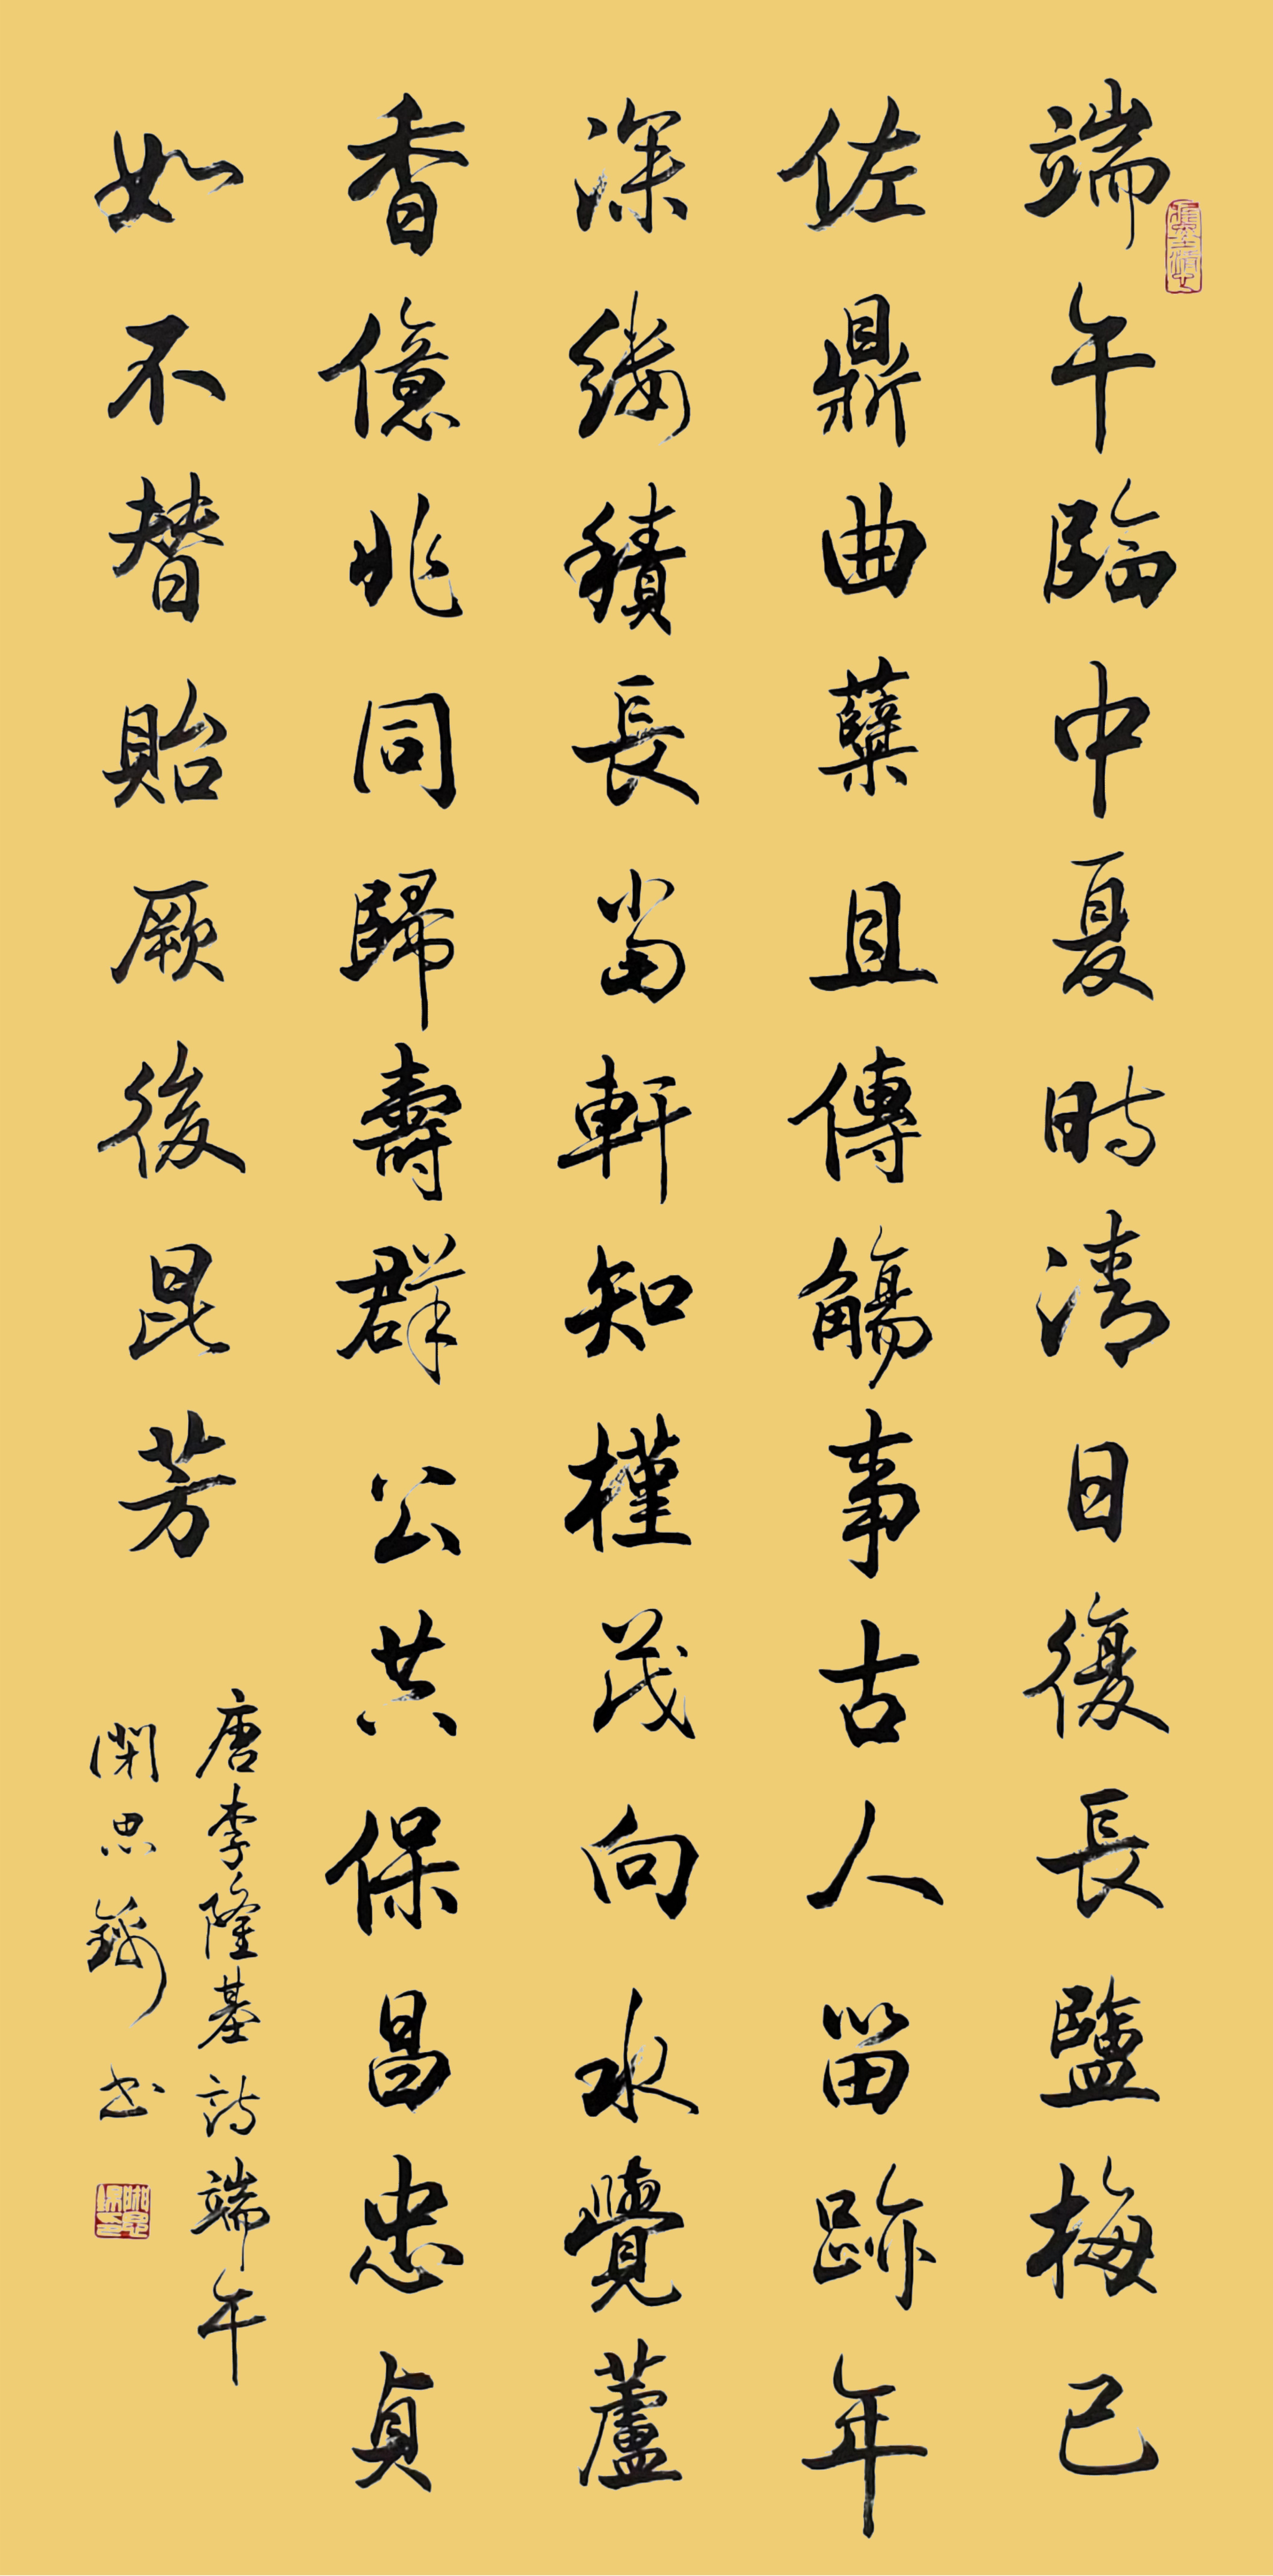 端午臨中夏時清日復長鹽梅已
佐鼎曲糵且傳觴事古人留跡年
深縷積長當軒知槿茂向水覺蘆
香億兆同歸壽群公共保昌忠貞
如不替貽厥後昆芳
唐李隆基詩端午
思书